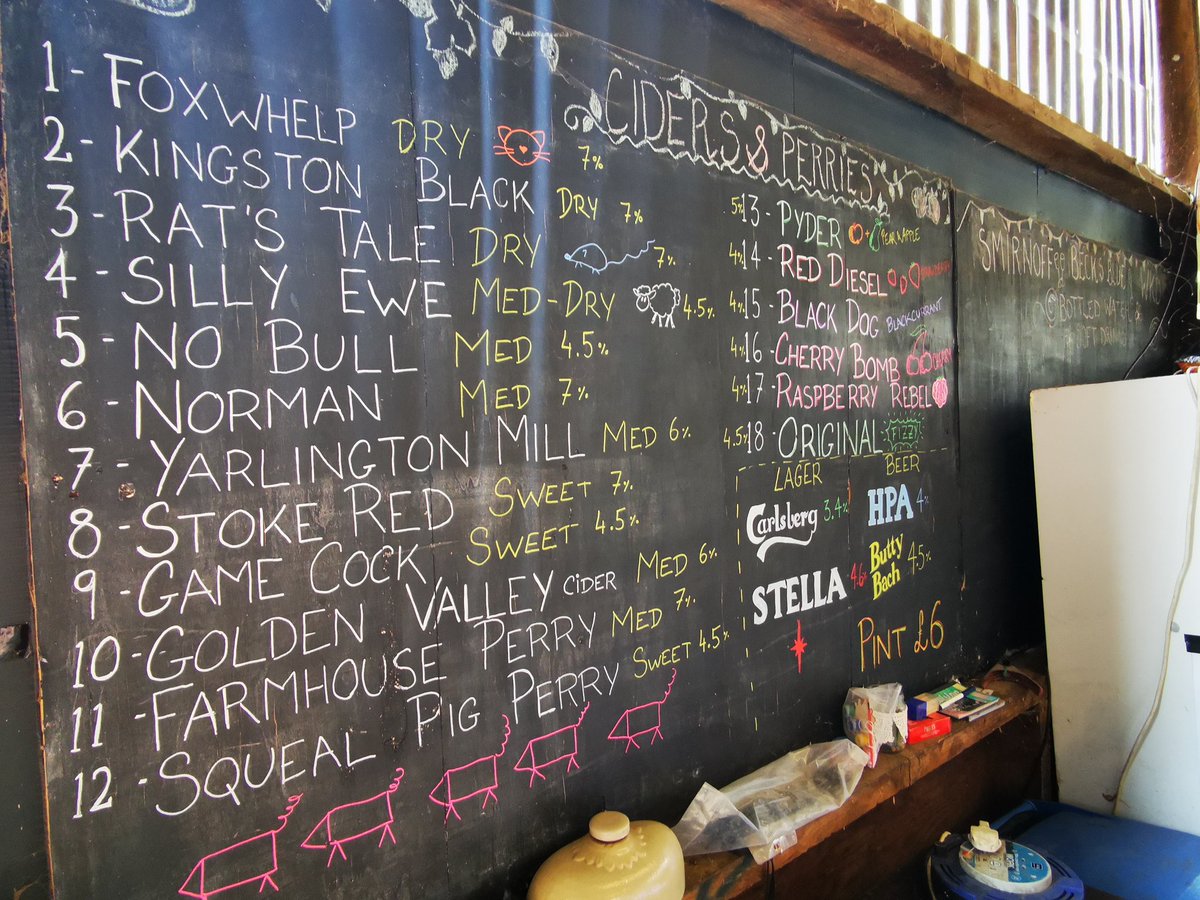 CIDERS & PERRIES
1 - FOXWHELP DRY 7%
2 - KINGSTON BLACK DRY 7%
3 - RAT'S TALE DRY 7%
4 - SILLY EWE MED-DRY 4.5%
5 - NO BULL MED 4.5%
6 - NORMAN MED 7%
7 - YARLINGTON MILL MED 6%
8 - STOKE RED SWEET 7%
9 - GAME COCK SWEET 4.5%
10 - GOLDEN VALLEY CIDER MED 6%
11 - FARMHOUSE PERRY MED 7%
12 - SQUEAL PIG PERRY SWEET 4.5%
5% 13 - PYDER PEAR & APPLE
4% 14 - RED DIESEL
4% 15 - BLACK DOG BLACKCURRANT
4% 16 - CHERRY BOMB CHERRY
4% 17 - RASPBERRY REBEL
4.5% 18 - ORIGINAL FIZZY
LAGER
Carlsberg 3.4%
STELLA 4.6%
BEER
HPA 4%
Butty Bach 4.5%
PINT £6
SMIRNOFF BECK'S BLUE
BOTTLED